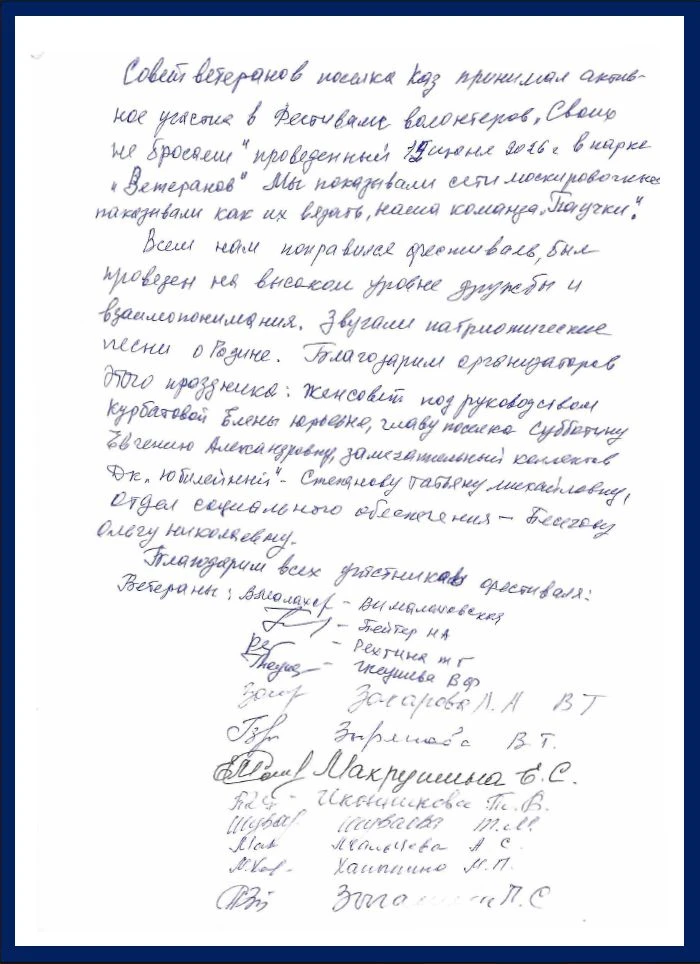 Совет ветеранов поселка Каз принимал актив-
ное участие в Фестивале волонтеров „Своих
не бросаем" проведенный 12 июне 2026 г в парке
„Ветеранов" Мы показывали сети москировочные
паказывали как их вязать, наша команда „Паучки".
Всем нам понравился фестиваль, был
проведен на высоком уровне дружбы и
взаимопонимания. Звучали патриотические
песни о Родине. Благодарим организаторов
этого праздника: женсовет под руководством
Курбатовой Елены Юрьевне, главу поселка Субботину
Евгению Александровну, замечательный коллектив
Дк „Юбилейный" - Степанову Татьяну Михайловну,
отдел социального обеспечения -
Ольгу Николаевну.
Благодарим всех участников фестиваля:
Ветераны:
- Пейгер НА
- Рехтина
В Ф
Захарова Л. А В Т
В. Т.
Макрушина Е. С.
Иконникова
Шуваева Т. М.
Мальцева А С.
М. П.
П. С